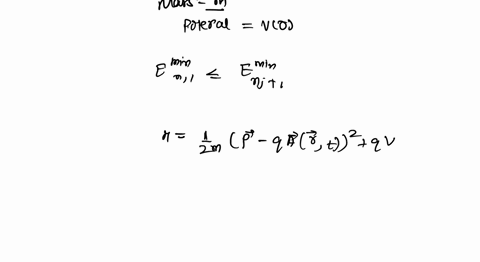 Mass = m
Poteral = V(0)
E^{min}_{n,1} ≤ E^{min}_{nj+1}
H = 1/2m (P⃗ - q A⃗(r⃗, t))² + q V